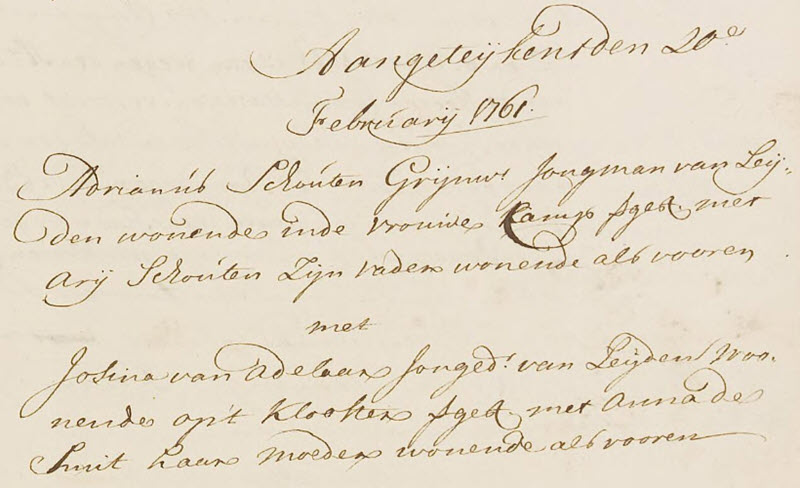 Aangeteijkent den 20e
Februarij 1761.
Adrianús Schoúten Grijnwr Jongman van Leij,,
den wonende inde vrouwe Kamp Agest. met
Arij Schoúten Zijn vader wonende als vooren
met
Josina van Adelaar Jonged.r van Leijden Woo,
nende op't Klooster Agest. met Anna de
Smit haar moeder wonende als vooren